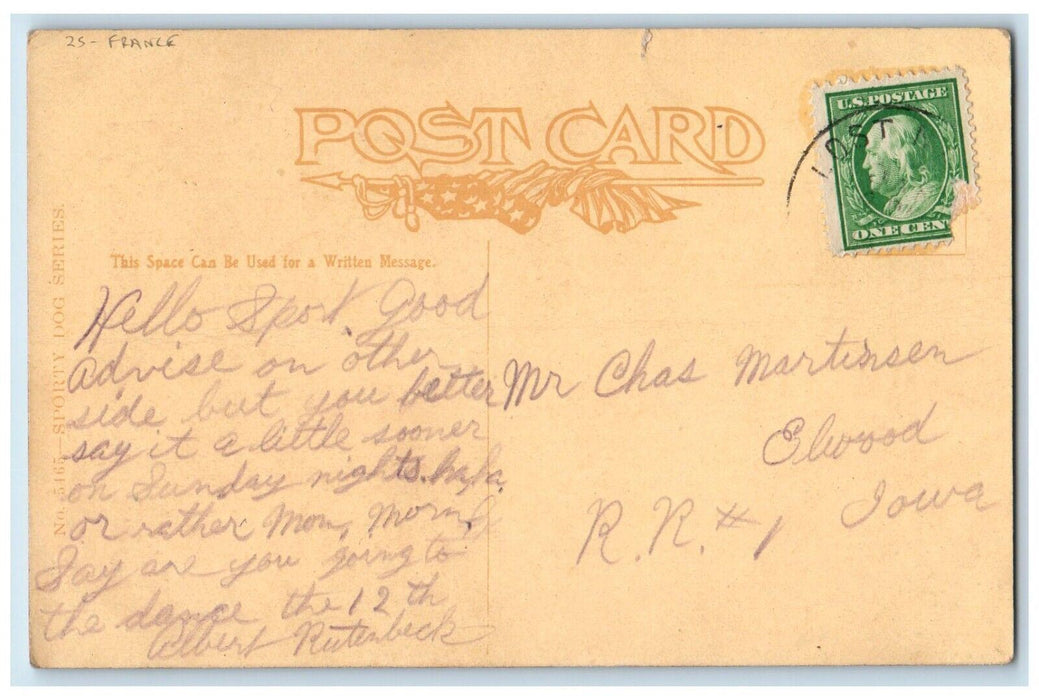 25- FRANCE
POST CARD
U.S. POSTAGE
LOST
ONE CEN
No. 5465—SPORTY DOG SERIES.
This Space Can Be Used for a Written Message.
Hello Spot. Good
advise on other
side but you better
say it a little sooner
on Sunday nights. haha
or rather Mon, Morn,
Say are you going to
the dance the 12th
Albert Rutenbeck
Mr Chas Martinsen
Elwood
Iowa
R.R. #1